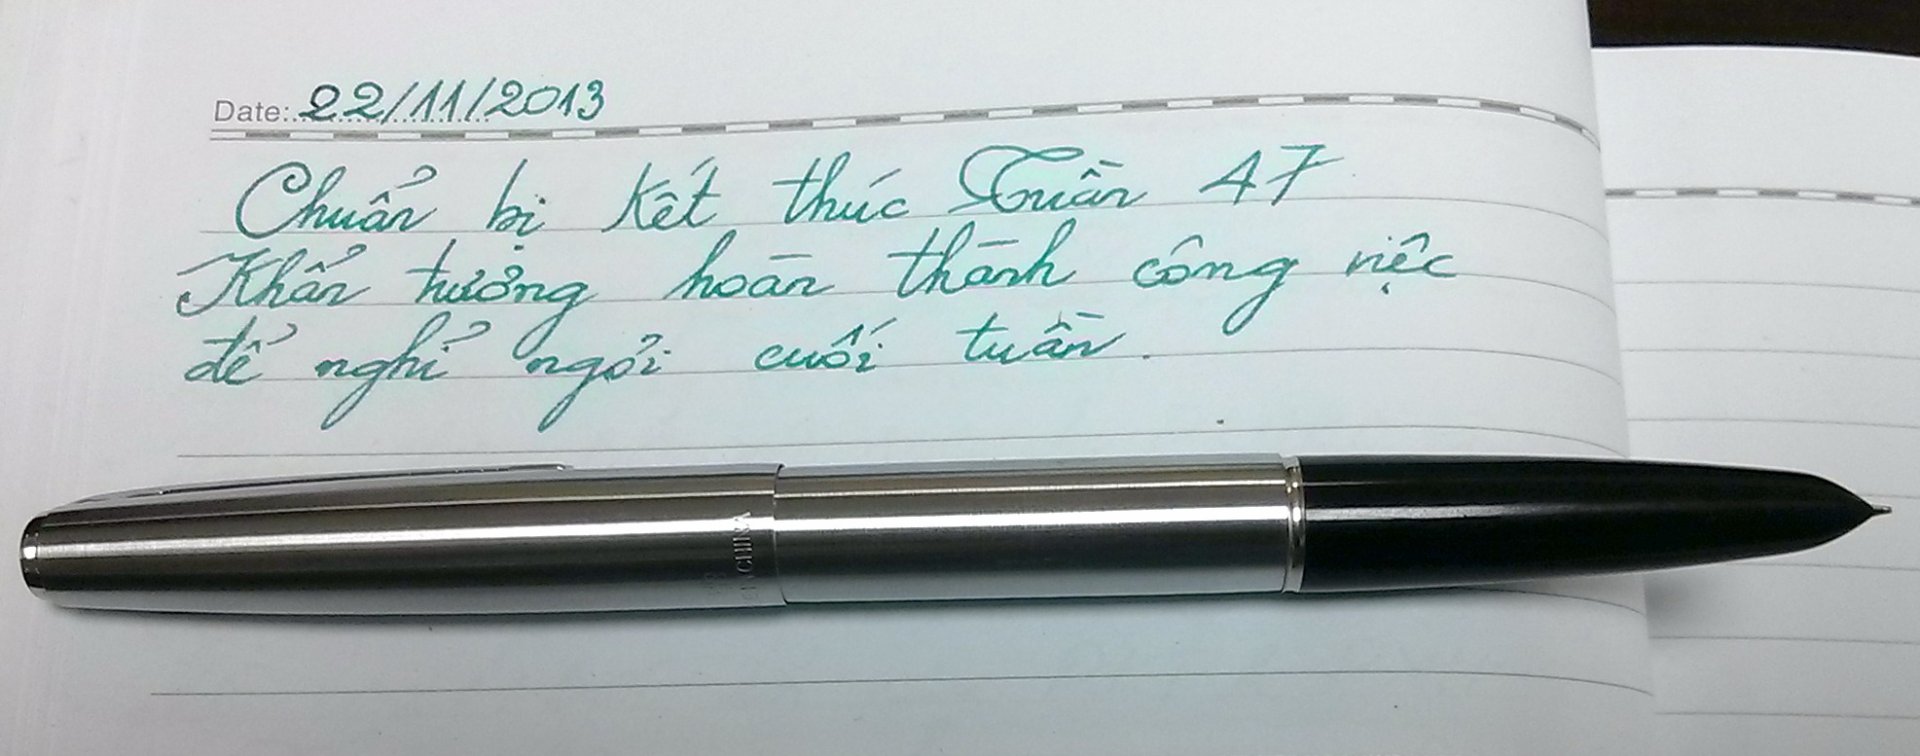 Date: 22/11/2013
Chuẩn bị kết thúc Tuần 47
Khẩn tưởng hoàn thành công việc
để nghỉ ngơi cuối tuần.
CHINA